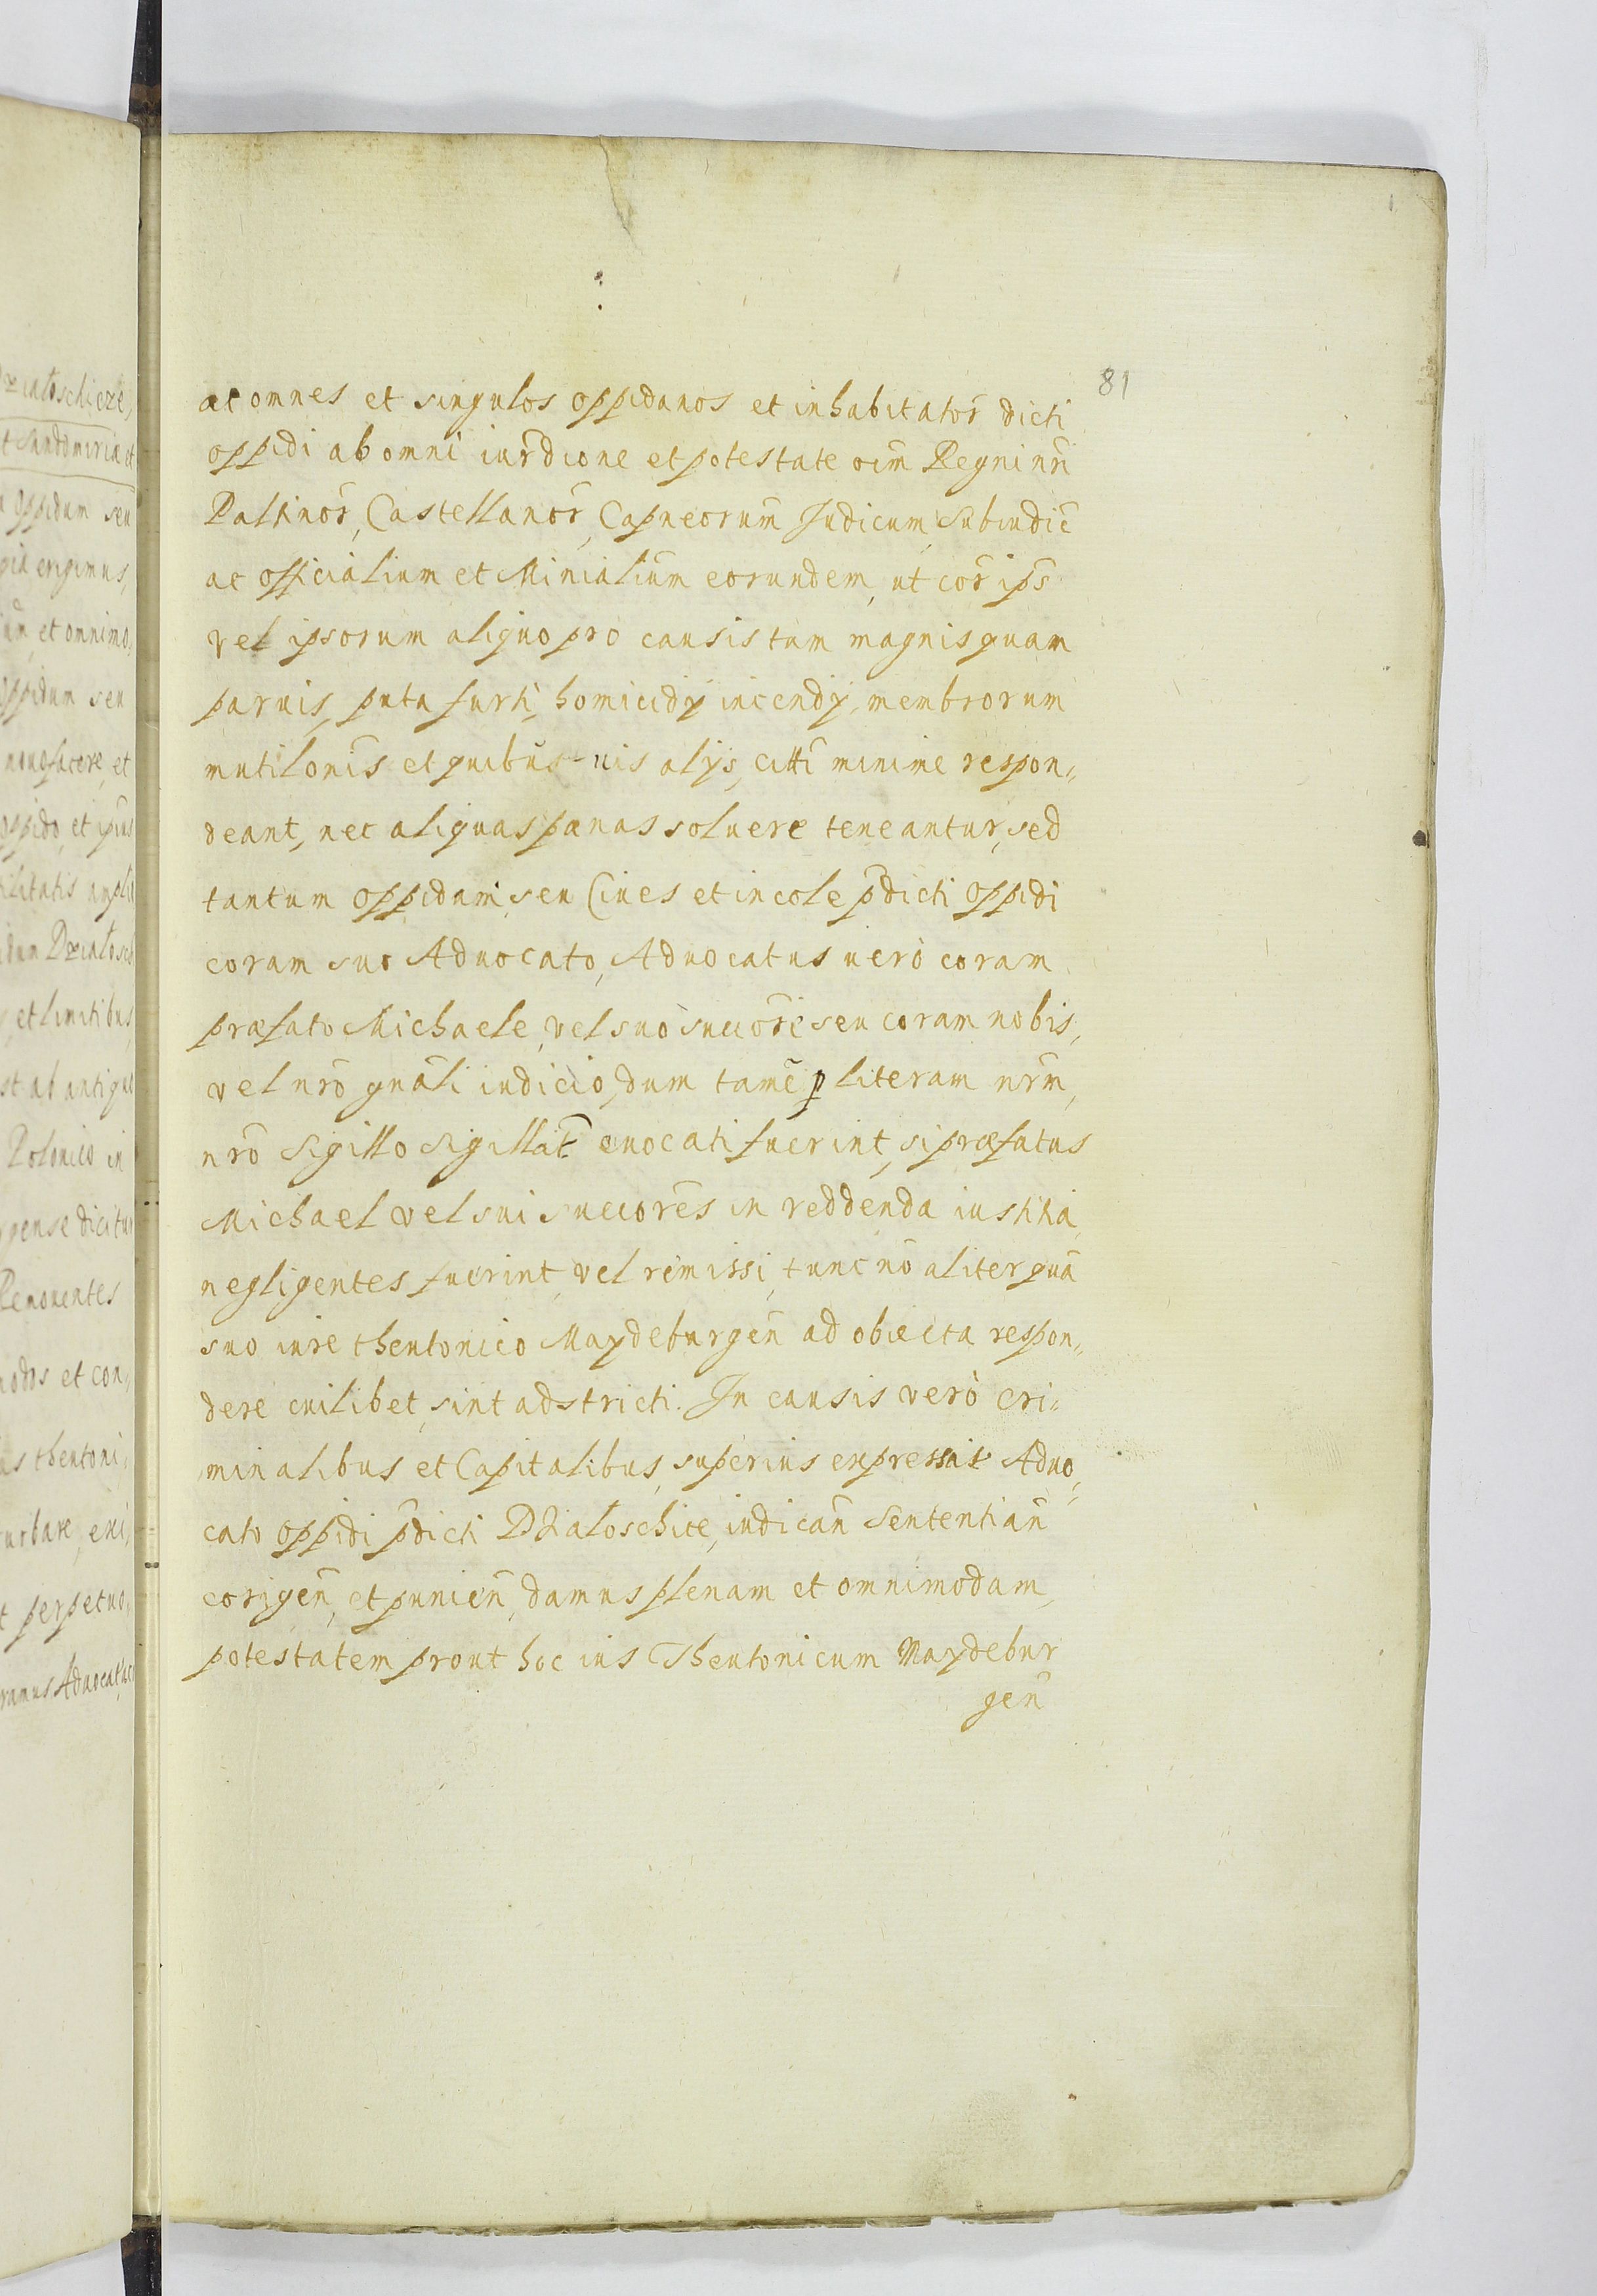 81
ac omnes et singulos oppidanos et inhabitator̃ dicti
oppidi ab omni iur̃dione et potestate oim̃ Regni nr̃i
Paltinor̃, Castellanor̃, Capneorum̃ Judicum, Subiudic̃
ac officialium et Minialium̃ eorundem, ut cor̃ ips̃
vel ipsorum aliquo pro causis tam magnis quam
paruis, puta furti, homicidij incendij, membrorum
mutilonis̃ et quibus-uis alijs, citti̇̃ minime respon„
deant, nec aliquas pænas soluere teneantur, sed
tantum oppidani, seu Ciues et incole p̃dicti oppidi
coram suo Aduocato, Aduocatus uerò coram
præfato Michaele, vel suo succor̃e seu coram nobis,
vel nrõ gnãli iudicio, dum tamẽ ꝑ literam nrm̃,
nrõ sigillo sigillat̃ euocati fuerint, si præfatus
Michael vel sui succorẽs in reddenda iustitia
negligentes fuerint, vel remissi, tunc nõ aliter quã
suo iure theutonico Maydeburgen̄ ad obiecta respon„
dere cuilibet, sint adstricti. In causis verò cri„
minalibus et Capitalibus, superius expressis Aduo„
cato oppidi p̃dicti Dzialoschice, iudican̄ sententian̄
corigen̄, et punien̄, damus plenam et omnimodam
potestatem prout hoc ius Theutonicum Maydebur
gen̄